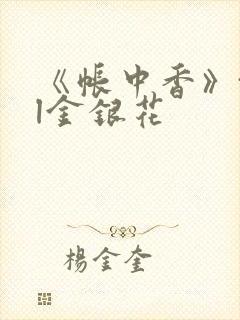 《帐中香》
|金银花
杨金奎